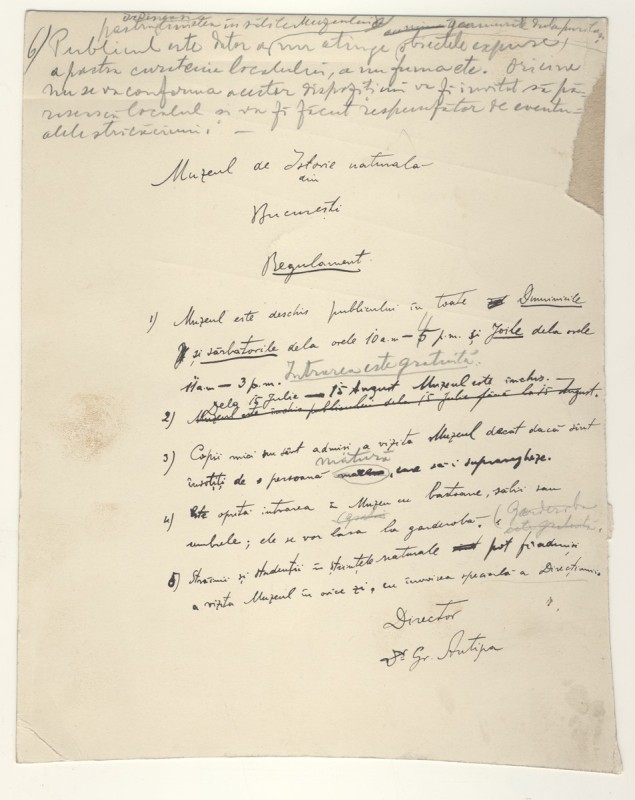 pastra liniștea în sălile Muzeului
6) Publicul este dator a nu atinge obiectele expuse,
a pastra curățenia localului, a nu fuma etc. Oricine
nu se va conforma acestor dispozițiuni va fi invitat să pă-
răsească localul si va fi făcut respunzător de eventu-
alele stricăciuni. —
Muzeul de Istorie naturala
din
București
Regulament
1) Muzeul este deschis publicului în toate Duminicile
și sărbatorile dela orele 10 a.m – p.m. și Joile dela orele
11 a.m – 3 p.m. Intrarea este gratuită.
dela 15 Iulie — 15 August Muzeul este închis. —
2) Muzeul este închis publicului dela 15 Iulie până la 15 August.
3) Copii mici nu sânt admiși a vizita Muzeul decat dacă sint
matură
însotiți de o persoană care să-i supravegheze.
4) Este oprită intrarea în Muzeu cu bastoane, săbii sau
umbrele; ele se vor lăsa la garderobă. (Garderoba
este gratuită.)
5) Străinii și studenții în științele naturale pot fi admiși
a vizita Muzeul în orice zi, cu învoirea specială a Direcțiunii.
Director
Dr Gr. Antipa